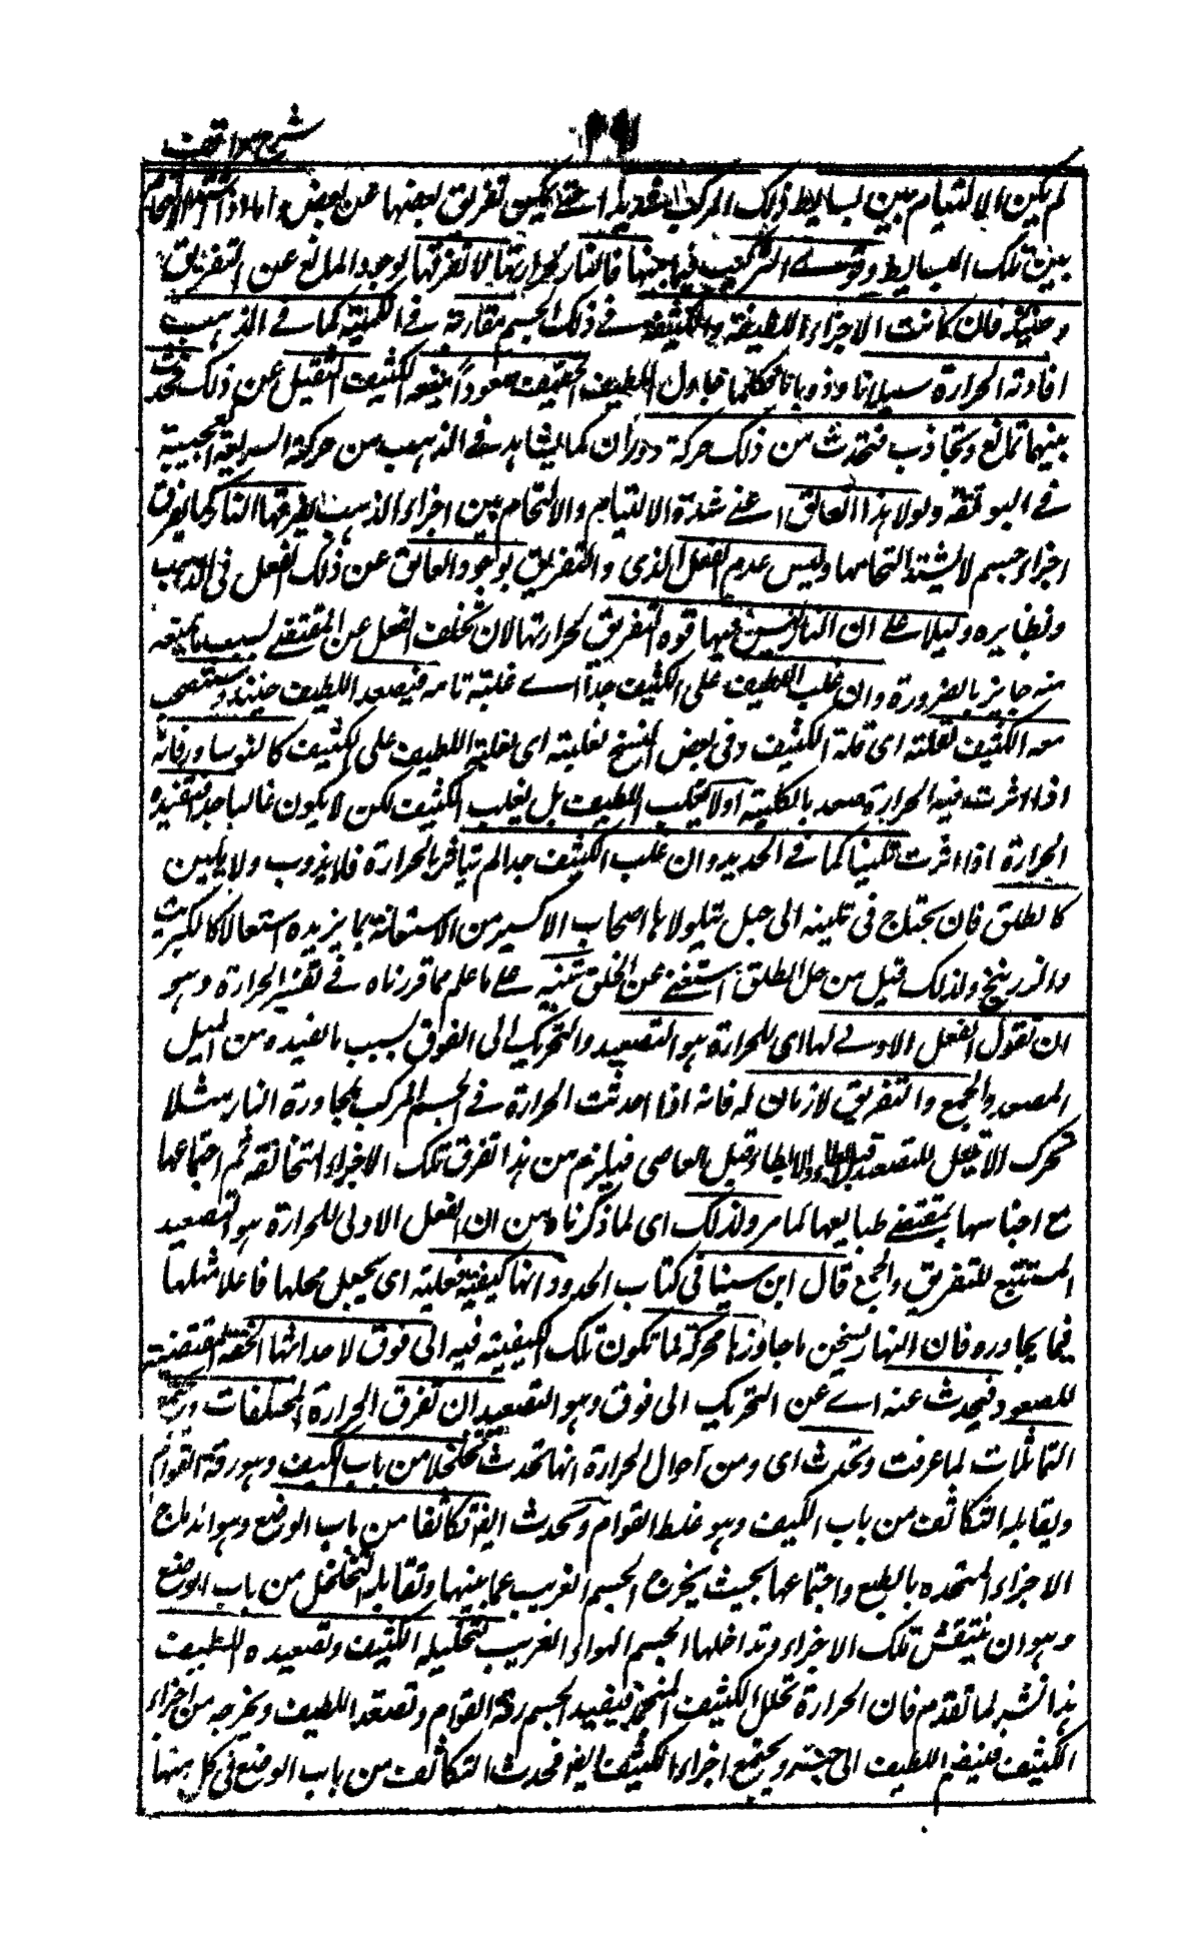 شرح مواقف
لم يكن الالتيام بين بسايط ذلك المركب شديدا حتى يمكن تفريق بعضها عن بعض واما اذا اشتد الالتحام
بين تلك البسايط وقوى التركيب فيما بينها فالنار بحرارتها لا تفرقها لوجود المانع عن التفريق
وحينئذ فان كانت الاجزاء اللطيفة والكثيفة في ذلك الجسم متقاربة في الكمية كما في الذهب
افادته الحرارة سيلانا وذوبانا فكلما حاول اللطيف الخفيف صعودا منعه الكثيف الثقيل عن ذلك فحدث
بينهما تمانع وتجاذب فتحدث من ذلك حركة دوران كما يشاهد في الذهب من حركة السريعة العجيبة
في البوتقة ولولا هذا العائق اعني شدة الالتيام والالتحام بين اجزاء الذهب لفرقها النار كما يفرق
اجزاء جسم لا يشتد التحامها وليس عدم الفعل الذى والتفريق بوجود العائق عن ذلك الفعل في الذهب
ونظايره دليلا على ان النار ليس فيها قوة التفريق لحرارتها لان تخلف الفعل عن المقتضى لسبب ما يمنعه
منه جايز بالضرورة وان غلب اللطيف على الكثيف جدا اے غلبة تامة فيصعد اللطيف حينئذ ويستصحب
معه الكثيف لقلته اى قلة الكثيف وفى بعض النسخ لغلبته اى لغلبة اللطيف على الكثيف كالنوشادر فانه
اذا اثرت فيه الحرارة صعد بالكلية اولا يغلب اللطيف بل يغلب الكثيف لكن لا يكون غالبا جدا فتفيده
الحرارة اذا اثرت تليينا كما في الحديد وان غلب الكثيف جدا لم يتاثر بالحرارة فلا يذوب ولا يلين
كالطلق فان يحتاج فى تليينه الى حيل يتولاها اصحاب الاكسير من الاستعانة بما يزيده اشتعالا كالكبريت
والزرنيخ ولذلك قيل من حل الطلق استغنى عن الخلق تنبيه على ما علم مما قررناه في تفسير الحرارة وهو
ان نقول الفعل الاولے لها اى للحرارة هو التصعيد والتحريك الى الفوق بسبب ما تفيده من الميل
المصعد والجمع والتفريق لازمان له فانه اذا احدثت الحرارة في الجسم المركب بمجاورة النار مثلا
تحرك الاقبل للتصعد قبل الابطاء والابطاء قبل العاصى فيلزم من هذا تفرق تلك الاجزاء المتخالفة ثم اجتماعها
مع اجناسها بمقتضى طبايعها كما مر ولذلك اى لما ذكرناه من ان الفعل الاولى للحرارة هو التصعيد
المستتبع للتفريق والجمع قال ابن سينا فى كتاب الحدود انها كيفية فعلية اى يجعل محلها فاعلا مثلها
فيما يجاوره فان النار يسخن ما جاورها محركة لما تكون تلك الكيفية فيه الى فوق لاحداثها الخفة المقتضية
للصعود فيحدث عنه اے عن التحريك الى فوق وهو التصعيد ان تفرق الحرارة المختلفات وتجمع
المتماثلات لما عرفت وتحدث اى ومن احوال الحرارة انها تحدث تخلخلا من باب الكيف وهو رقة القوام
ويقابله التكاثف من باب الكيف وهو غلظ القوام وتحدث ايضا تكاثفا من باب الوضع وهو اندماج
الاجزاء المتحده بالطبع واجتماعها بحيث يخرج الجسم الغريب عما بينها ويقابله التخلخل من باب الوضع
وهو ان ينتفش تلك الاجزاء وتداخلها الجسم الهواء الغريب لتحليله الكثيف وتصعيده اللطيف
هذا نشر لما تقدم فان الحرارة تحلل الكثيف المنجمد فيفيد الجسم رقة القوام وتصعد اللطيف ويخرجه من اجزاء
الكثيف فينضم اللطيف الى جنسه ويجتمع اجزاء الكثيف ايضا فحدث التكاثف من باب الوضع فى كل منها